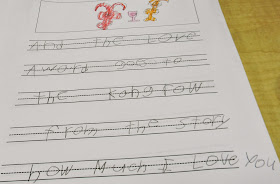 And the Love
Aword goe to
the kong fow
from the story
how Much I Love You